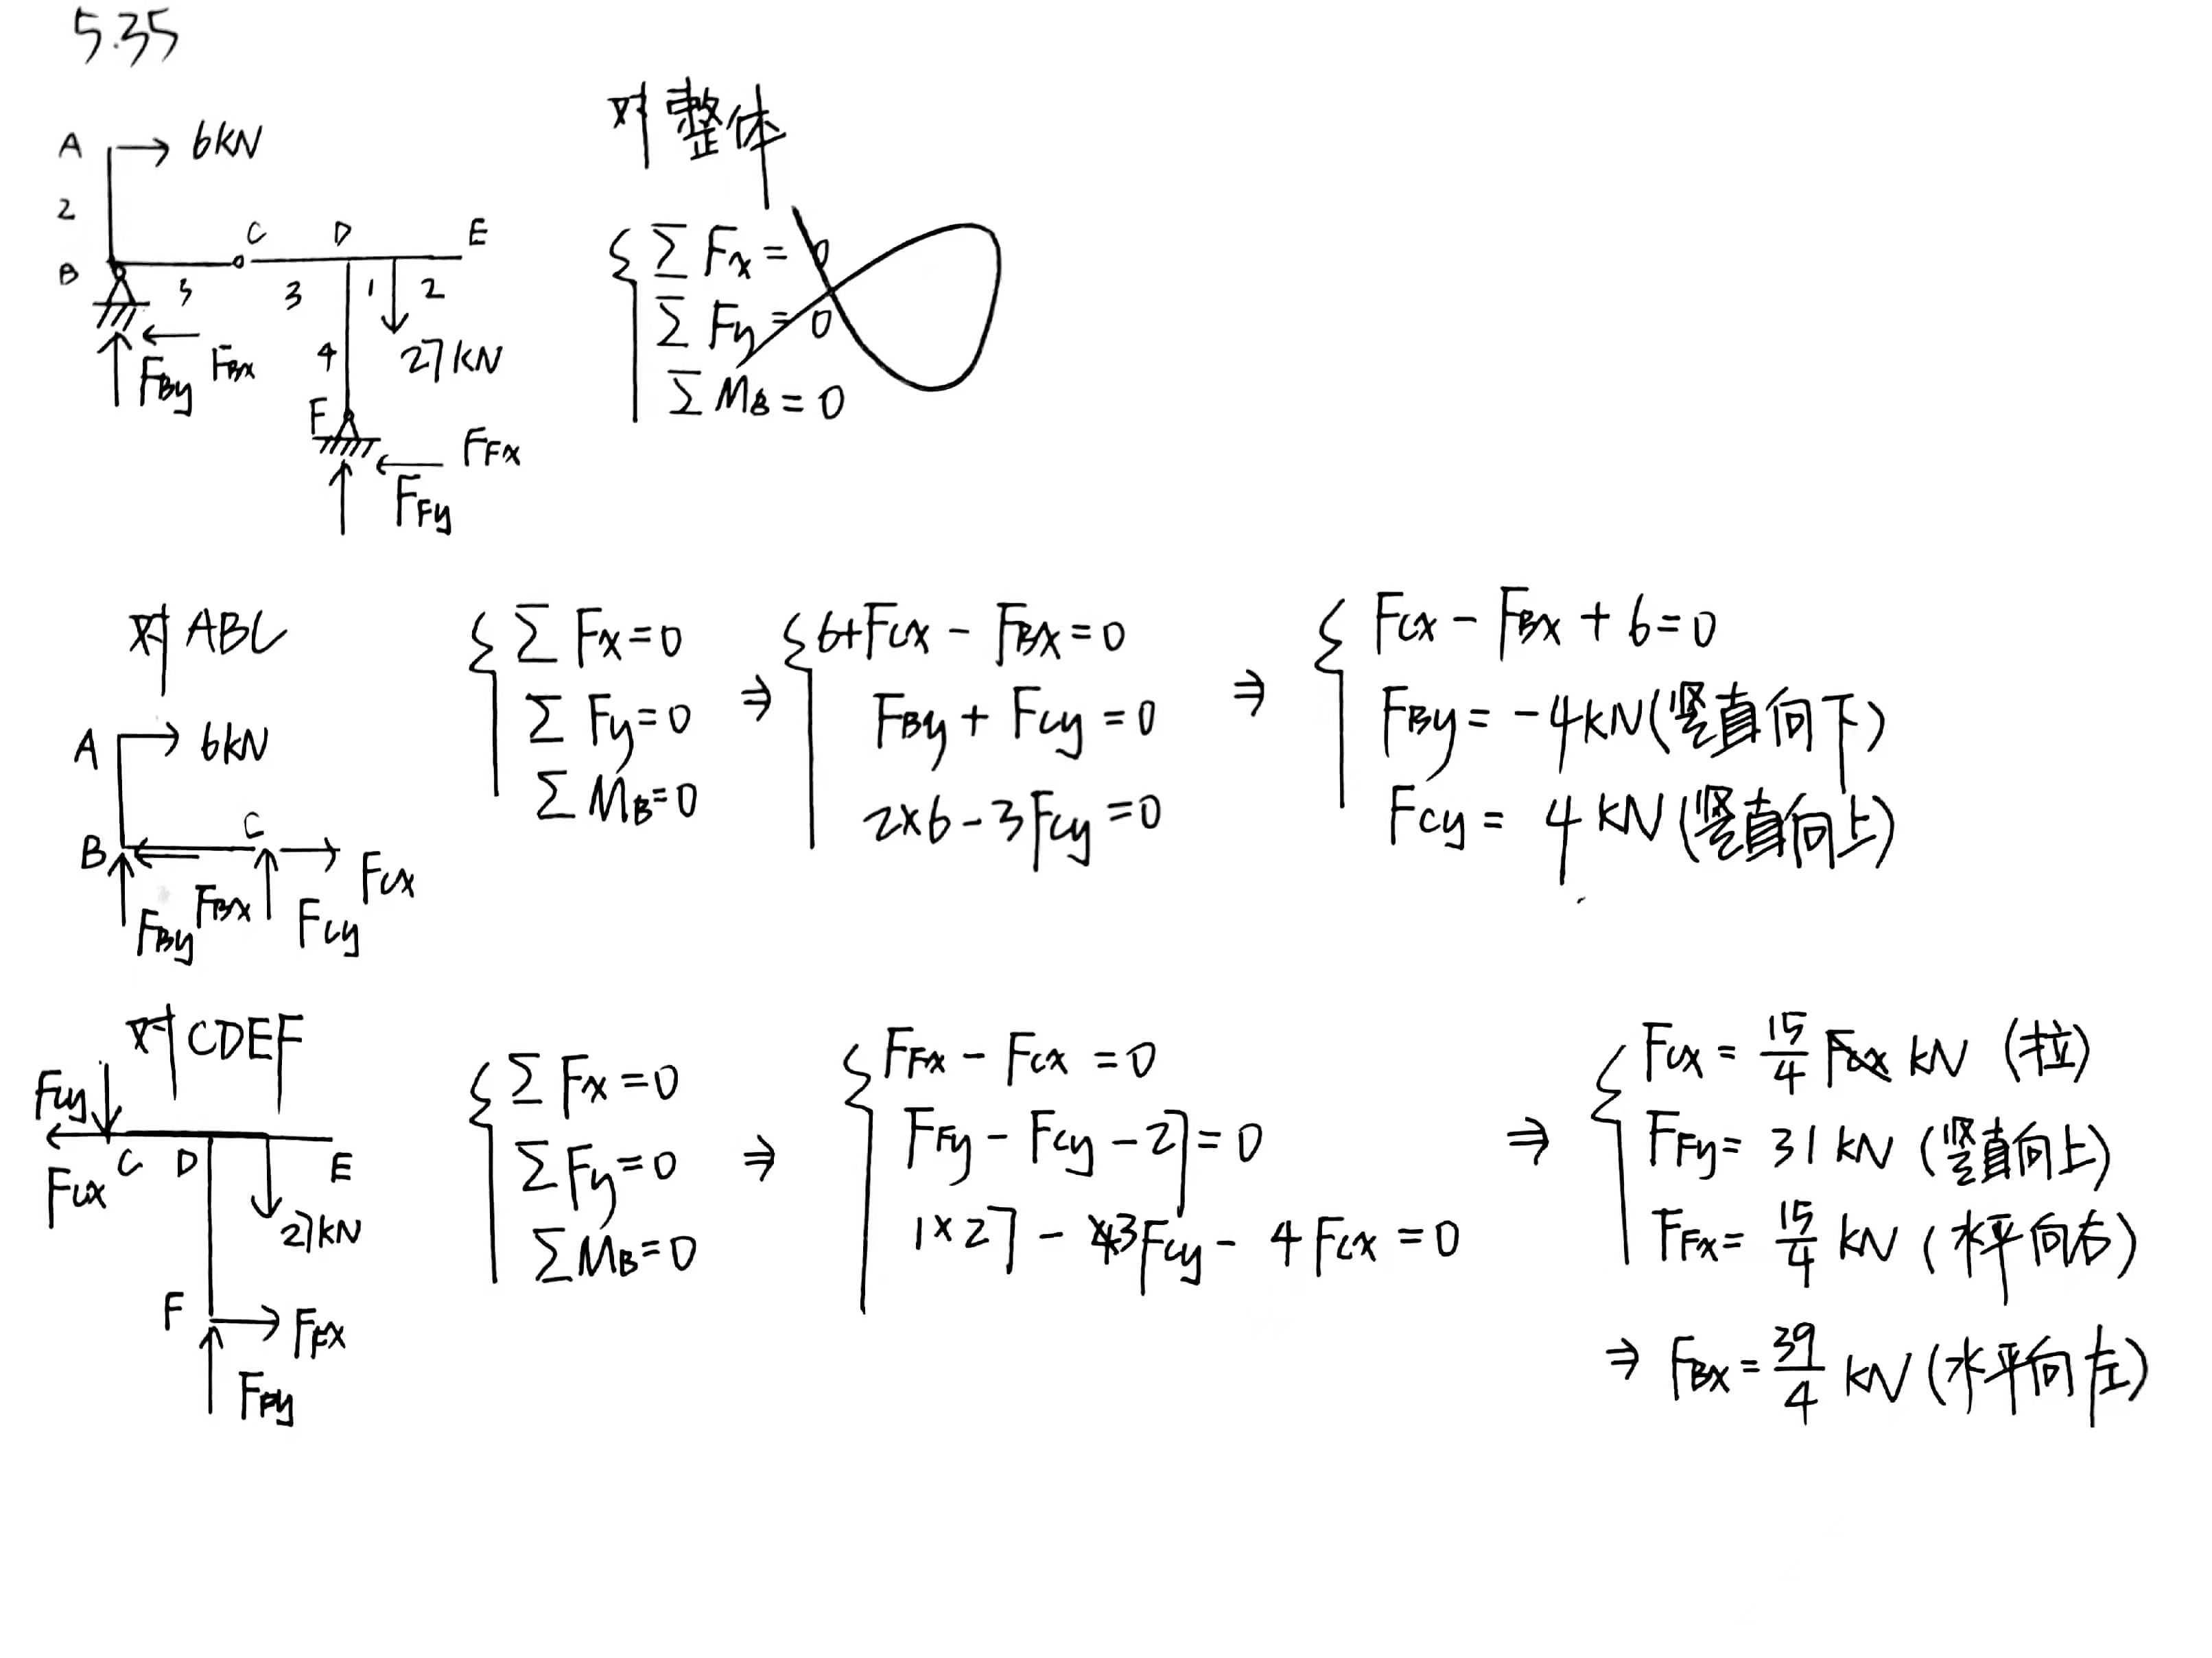 5.35
A 6kN
2
C D E
B 3 3 1 2
4 27kN
FBy FBx
F FFx
FFy
对整体
ΣFx = 0
ΣFy = 0
ΣMB = 0
对ABC
A 6kN
B C
FBy FBx FCy FCx
ΣFx=0
ΣFy=0
ΣMB=0
⇒
6+FCx - FBx=0
FBy + FCy = 0
2×6-3FCy=0
⇒
FCx - FBx + 6=0
FBy = -4kN(竖直向下)
FCy = 4kN(竖直向上)
对CDEF
FCy
FCx C D E
27kN
F FFx
FFy
ΣFx=0
ΣFy=0
ΣMB=0
⇒
FFx - FCx = 0
FFy - FCy - 27=0
1×27 - 3FCy - 4FCx = 0
⇒
FCx = 15/4 kN (拉)
FFy = 31kN (竖直向上)
FFx = 15/4 kN (水平向右)
⇒ FBx = 39/4 kN (水平向左)